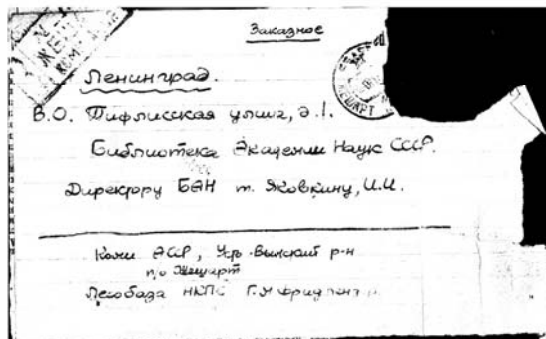 Заказное
Ленинград.
В.О. Тифлисская улица, д.1.
Библиотека Академии Наук СССР.
Директору БАН т. Яковкину, И.И.
Коми АССР, Усть-Вымский р-н
п/о Жешарт
Лесобаза НКПС Г.М Фридленд